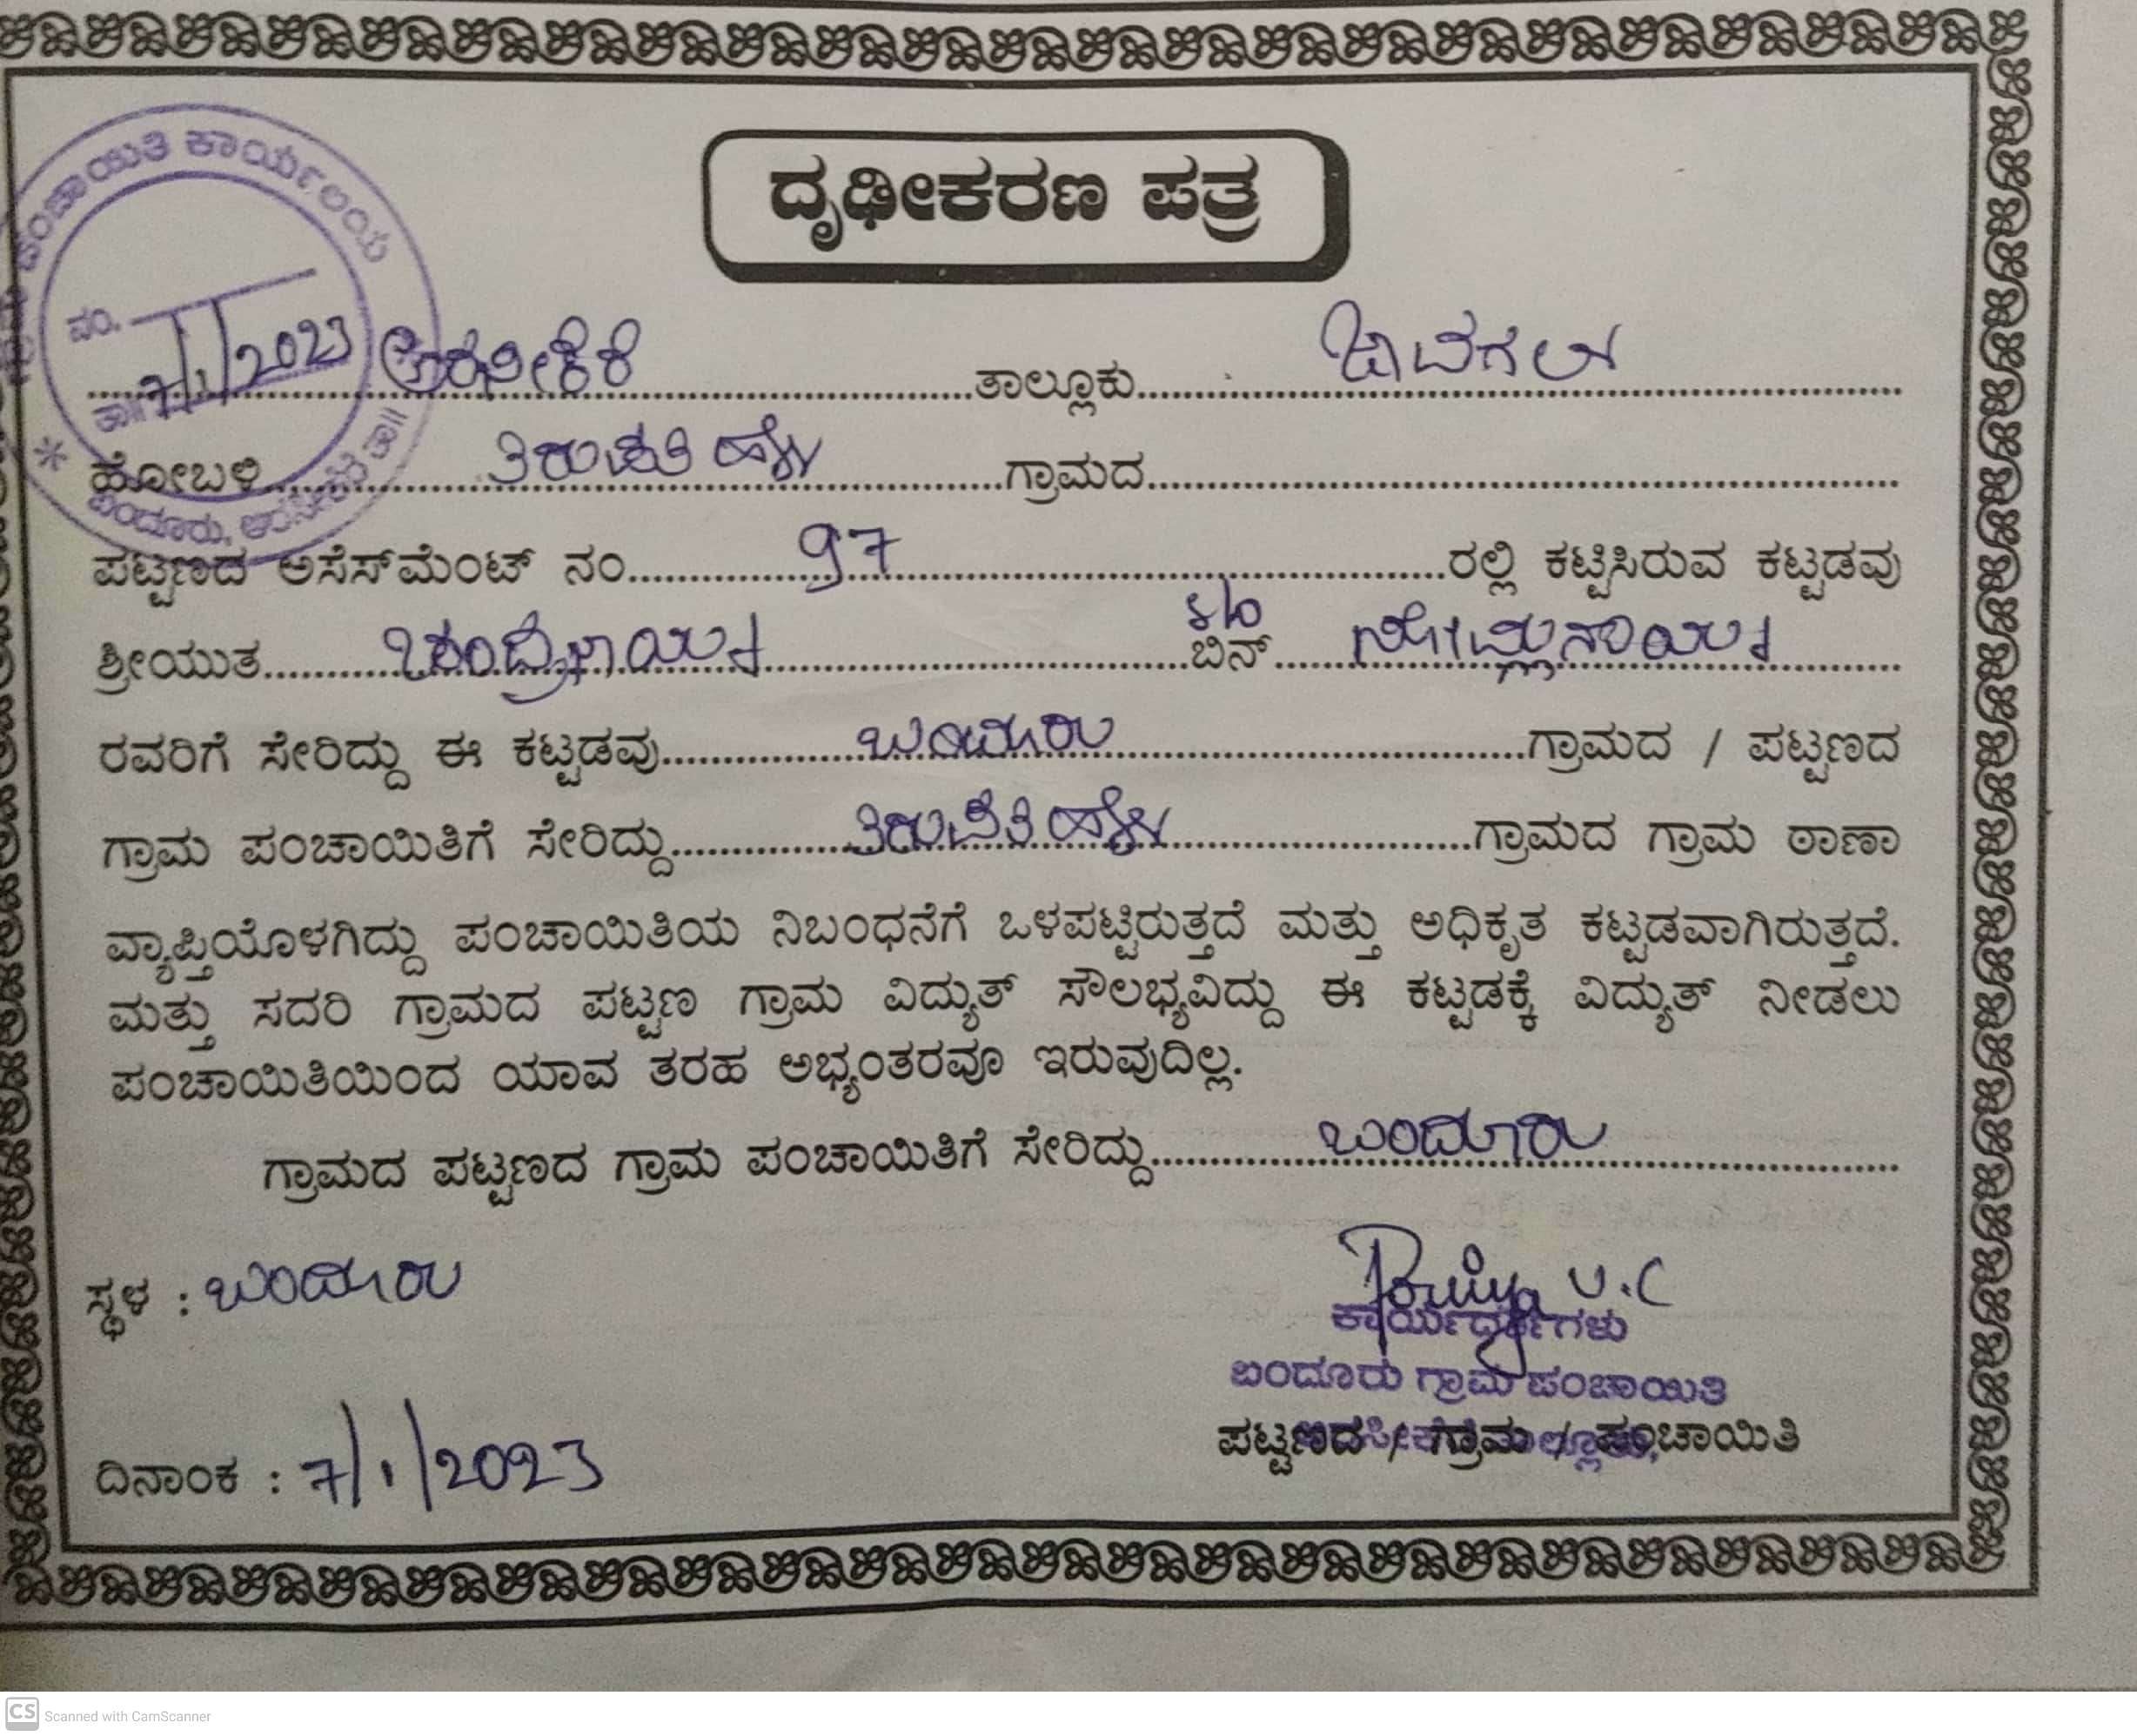 ದೃಢೀಕರಣ ಪತ್ರ
ಪಂಚಾಯಿತಿ ಕಾರ್ಯಾಲಯ
ನಂ.
7/1/2023 ಅರಸೀಕೆರೆ ತಾಲ್ಲೂಕು ಜಾವಗಲ್
ಹೋಬಳಿ ತಿರುಪತಿ ಹಳ್ಳಿ ಗ್ರಾಮದ
ಬಂದೂರು, ಅರಸೀಕೆರೆ ತಾ||
ಪಟ್ಟಣದ ಅಸೆಸ್‌ಮೆಂಟ್ ನಂ 97 ರಲ್ಲಿ ಕಟ್ಟಿಸಿರುವ ಕಟ್ಟಡವು
ಶ್ರೀಯುತ S/o ಬಿನ್
ರವರಿಗೆ ಸೇರಿದ್ದು ಈ ಕಟ್ಟಡವು ಬಂದೂರು ಗ್ರಾಮದ / ಪಟ್ಟಣದ
ಗ್ರಾಮ ಪಂಚಾಯಿತಿಗೆ ಸೇರಿದ್ದು ತಿರುಪತಿ ಹಳ್ಳಿ ಗ್ರಾಮದ ಗ್ರಾಮ ಠಾಣಾ
ವ್ಯಾಪ್ತಿಯೊಳಗಿದ್ದು ಪಂಚಾಯಿತಿಯ ನಿಬಂಧನೆಗೆ ಒಳಪಟ್ಟಿರುತ್ತದೆ ಮತ್ತು ಅಧಿಕೃತ ಕಟ್ಟಡವಾಗಿರುತ್ತದೆ.
ಮತ್ತು ಸದರಿ ಗ್ರಾಮದ ಪಟ್ಟಣ ಗ್ರಾಮ ವಿದ್ಯುತ್ ಸೌಲಭ್ಯವಿದ್ದು ಈ ಕಟ್ಟಡಕ್ಕೆ ವಿದ್ಯುತ್ ನೀಡಲು
ಪಂಚಾಯಿತಿಯಿಂದ ಯಾವ ತರಹ ಅಭ್ಯಂತರವೂ ಇರುವುದಿಲ್ಲ.
ಗ್ರಾಮದ ಪಟ್ಟಣದ ಗ್ರಾಮ ಪಂಚಾಯಿತಿಗೆ ಸೇರಿದ್ದು ಬಂದೂರು
ಸ್ಥಳ : ಬಂದೂರು
ಕಾರ್ಯದರ್ಶಿಗಳು
ಬಂದೂರು ಗ್ರಾಮ ಪಂಚಾಯಿತಿ
ಪಟ್ಟಣದ / ಗ್ರಾಮ / ಪಂಚಾಯಿತಿ
ದಿನಾಂಕ : 7/1/2023
CS Scanned with CamScanner